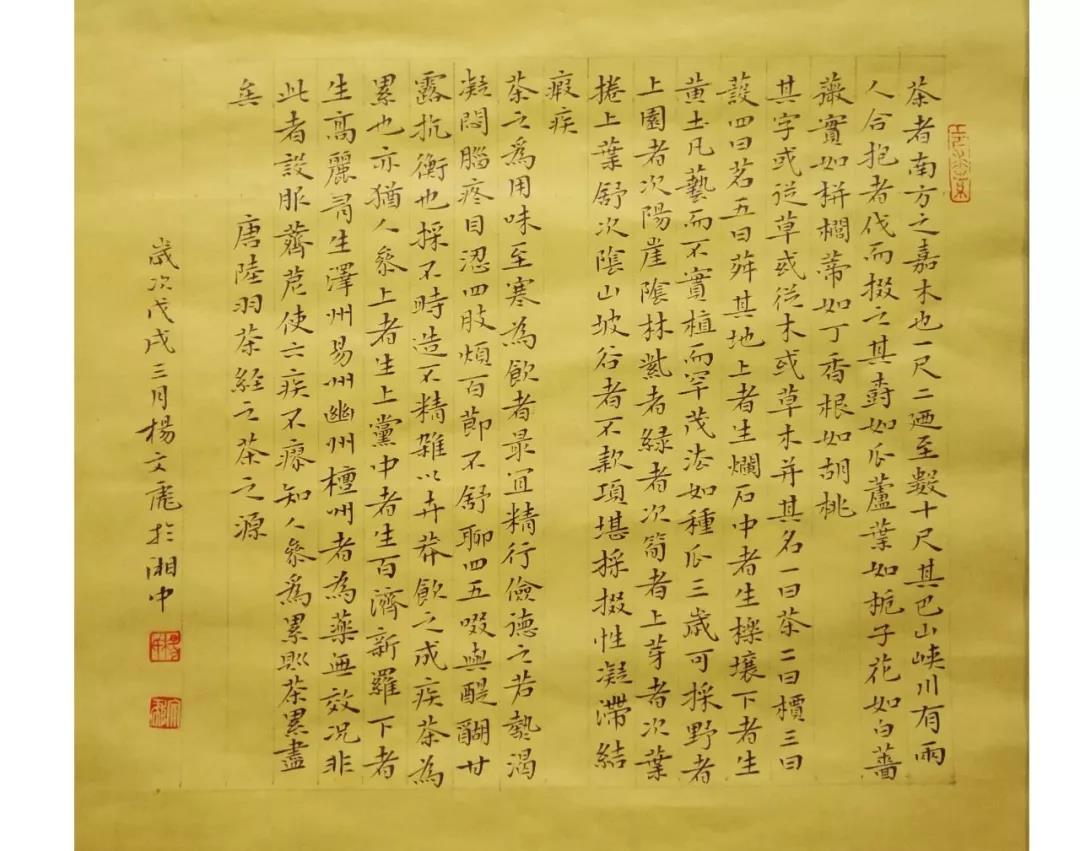 茶者南方之嘉木也一尺二廼至數十尺其巴山峽川有兩
人合抱者伐而掇之其樹如瓜蘆葉如梔子花如白薔
薇實如栟櫚蒂如丁香根如胡桃
其字或從草或從木或草木并其名一曰茶二曰檟三曰
蔎四曰茗五曰荈其地上者生爛石中者生櫟壤下者生
黃土凡藝而不實植而罕茂法如種瓜三歲可採野者
上園者次陽崖陰林紫者綠者次筍者上芽者次葉
捲上葉舒次陰山坡谷者不款項堪採掇性凝滯結
瘕疾
茶之為用味至寒為飲者最宜精行儉德之若熱渴
凝悶腦疼目澀四肢煩百節不舒聊四五啜與醍醐甘
露抗衡也採不時造不精雜以卉莽飲之成疾茶為
累也亦猶人參上者生上黨中者生百濟新羅下者
生高麗有生澤州易州幽州檀州者為藥無效況非
此者設服薺苨使六疾不瘳知人參為累則茶累盡
矣 唐陸羽茶經之茶之源
歲次戊戌三月楊文彪於湘中